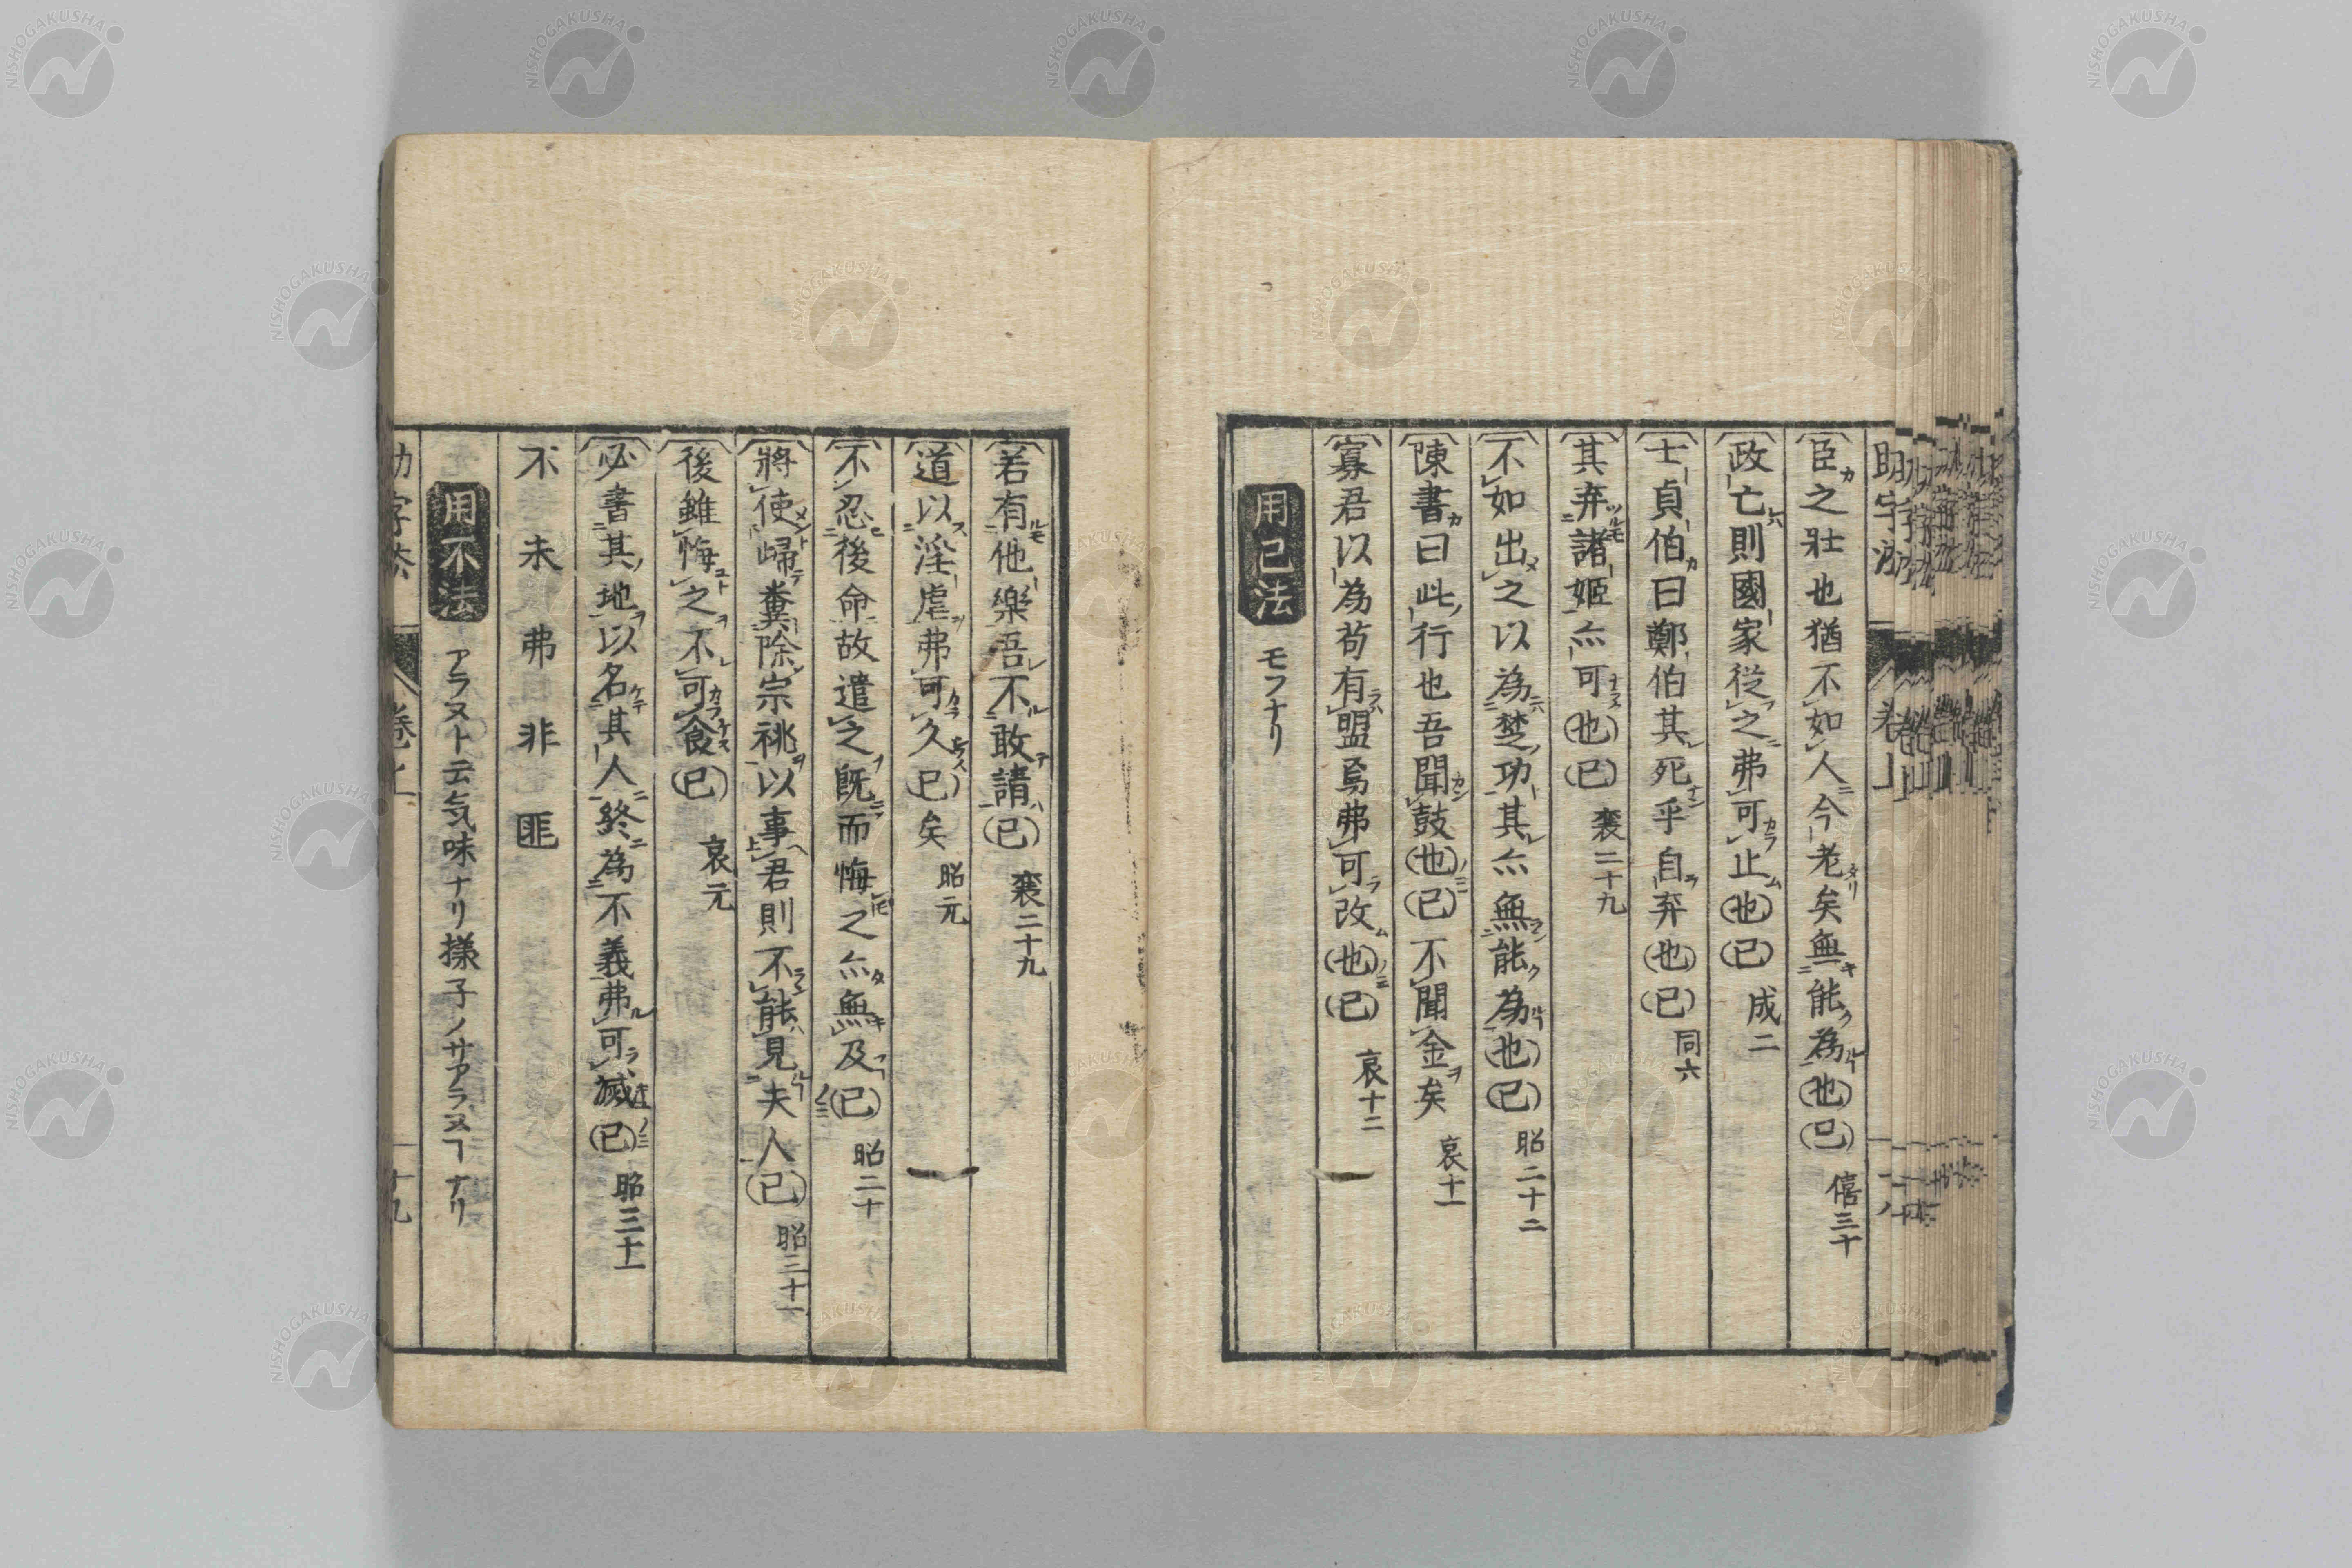 臣之壯也猶不如人今老矣無能為也已 僖三十
政亡則國家從之弗可止也已 成二
士貞伯曰鄭伯其死乎自弃也已 同六
其弃諸姬亦可也已 襄二十九
不如出之以為楚功其亦無能為也已 昭二十二
陳書曰此行也吾聞鼓也已不聞金矣 哀十一
寡君以為苟有盟焉弗可改也已 哀十二
用已法 モフナリ
若有他樂吾不敢請已 襄二十九
道以淫虐弗可久已矣 昭元
不忍後命故遣之既而悔之亦無及已 昭二十
將使歸糞除宗祧以事君則不能見夫人已 昭二十一
後雖悔之不可食已 哀元
必書其地以名其人終為不義弗可滅已 昭三十一
不 未 弗 非 匪
用不法 アラヌト云気味ナリ様子ノサアラヌヿナリ
助字法 卷上 十九
NISHOGAKUSHA